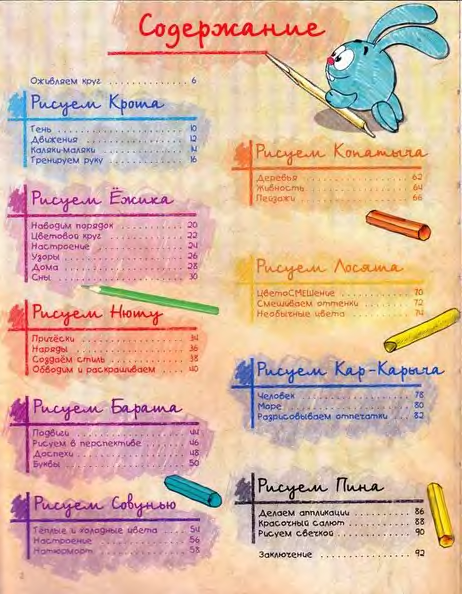 Содержание
Оживляем круг ........ 6
Рисуем Кроша
Тень ........ 10
Движения ........ 12
Каляки-маляки ........ 14
Тренируем руку ........ 16
Рисуем Ёжика
Наводим порядок ........ 20
Цветовой круг ........ 22
Настроение ........ 24
Узоры ........ 26
Дома ........ 28
Сны ........ 30
Рисуем Нюшу
Причёски ........ 34
Наряды ........ 36
Создаём стиль ........ 38
Обводим и раскрашиваем ........ 40
Рисуем Бараша
Подвиги ........ 44
Рисуем в перспективе ........ 46
Доспехи ........ 48
Буквы ........ 50
Рисуем Совунью
Тёплые и холодные цвета ........ 54
Настроение ........ 56
Натюрморт ........ 58
Рисуем Копатыча
Деревья ........ 62
Живность ........ 64
Пейзажи ........ 66
Рисуем Лосяша
ЦветоСМЕШение ........ 70
Смешиваем оттенки ........ 72
Необычные цвета ........ 74
Рисуем Кар-Карыча
Человек ........ 78
Море ........ 80
Разрисовываем отпечатки ........ 82
Рисуем Пина
Делаем аппликации ........ 86
Красочный салют ........ 88
Рисуем свечкой ........ 90
Заключение ........ 92
2